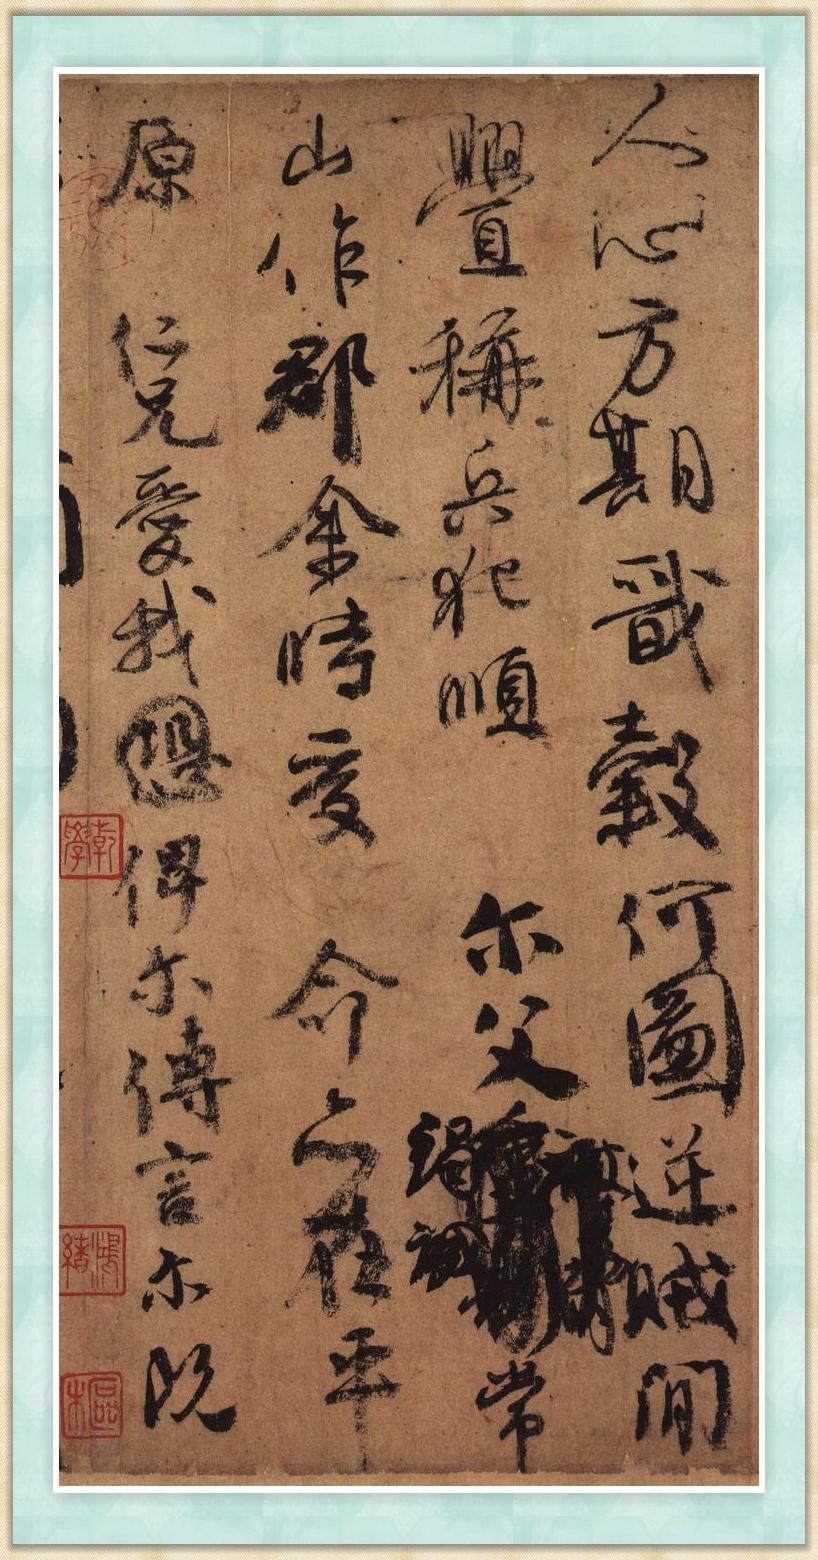 人心方期戩穀何圖逆賊閒
釁稱兵犯順 尔父竭誠常
山作郡余時受 命亦在平
原 仁兄愛我俾尔傳言尔既
乾學
鴻緒